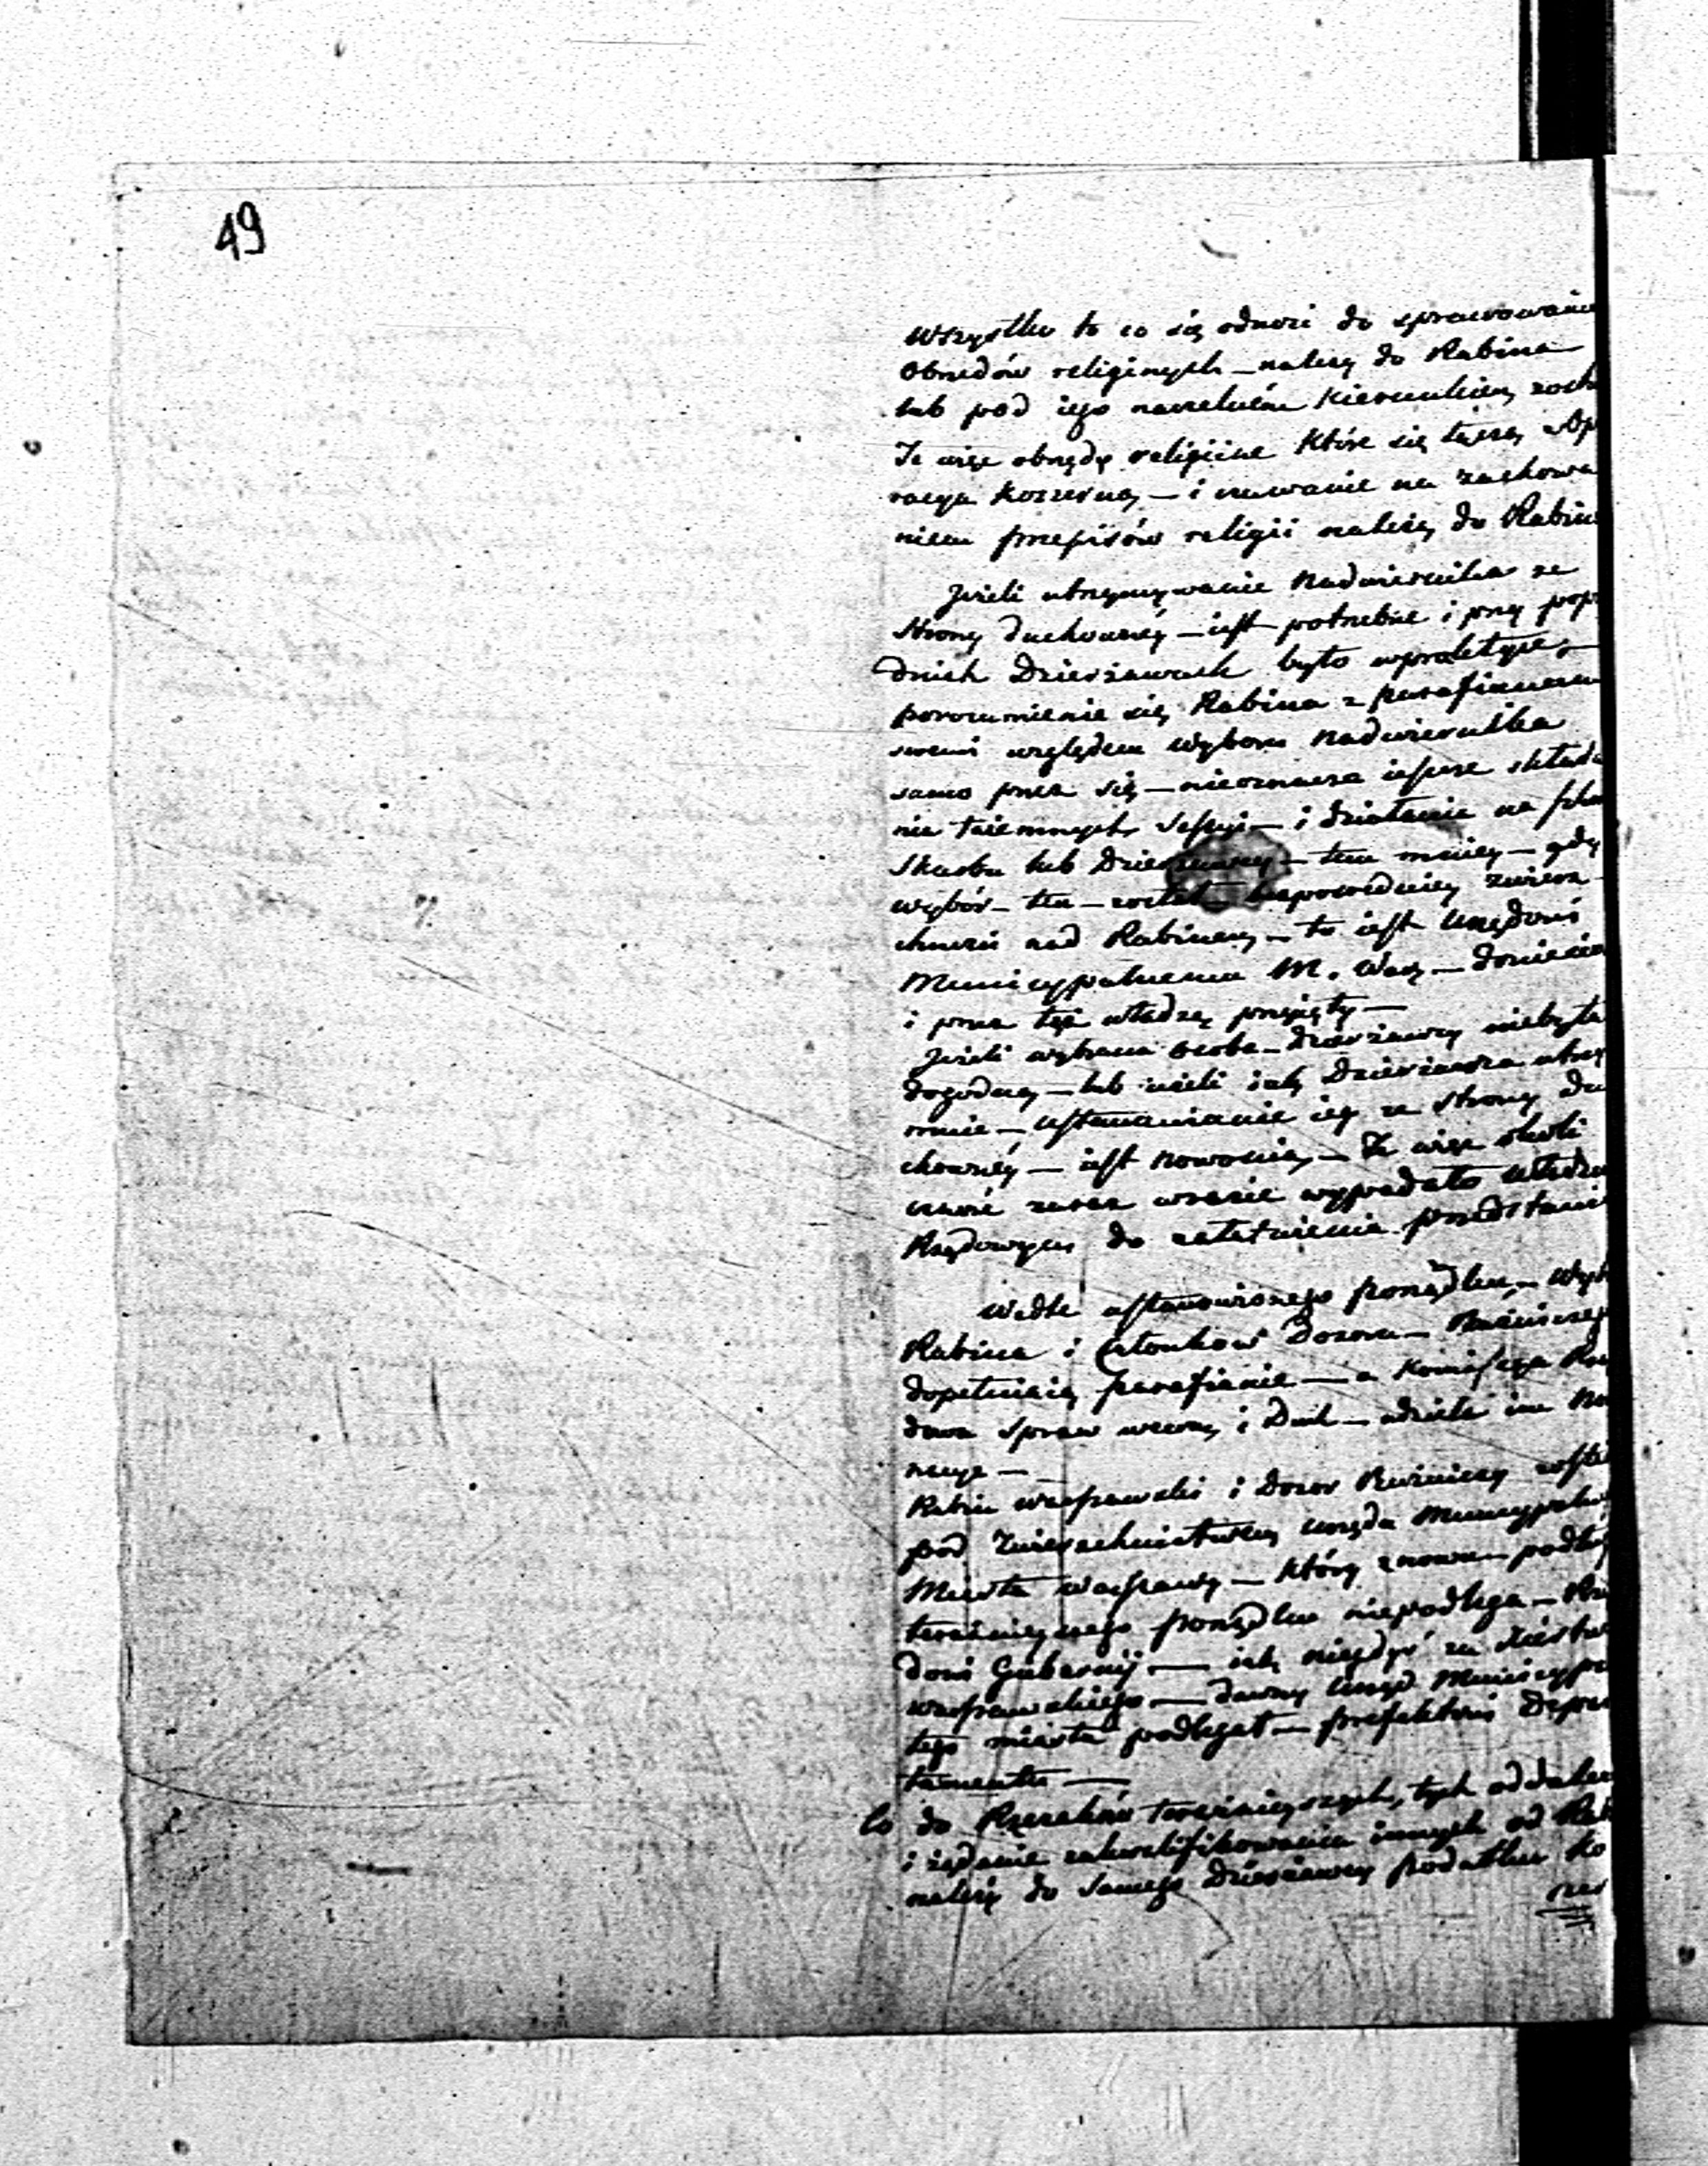 49
Wszystko to co się odnosi do sprawowania
Obrzędów religinych — należy do Rabina
lub pod iego naczelném kierunkiem zosta
Te więc obrzędy religiine które się tyczą
racya koszerną — i czuwanie na zachowa
niem przepisów religii należą do Rabina
Jeżeli utrzymywanie Nadwiernika ze
strony duchownéy — iest potrzebne i przy pop
dnich Dzierżawach było w praktyce, —
porozumienie się Rabina z parafianami
swemi względem wyboru Nadwiernika
samo przez się — nieoznacza ieszcze składa
nie taiemnych Sessyi — i działanie na szko
Skarbu lub Dzierżawcy — tem mniey — gdy
wybór — ten — został bezpowiedniey zwierz
chności nad Rabinem — to iest Urzędowi
Municypalnemu M. Warsz — doniesio
i przez tęż władzę przyięty —
Jeżeli wybrana osoba — Dzierżawcy niebyła
dogodną — lub ieżeli iak Dzierżawca utrzy
muie — ustanowienie iey ze strony du
chownéy — iest nowością, — Te więc okoli
czność zaraz wczasie wypadało władzom
Rządowym do załatwienia przedstawić
Wedle ustanowionego porządku, — Wyb
Rabina i Członków Dozoru — Bóżniczeg
dopełniaią parafianie — a Kommissya Rzą
dowa Spraw wewnę i Duch — udziela im No
nacye —
Rabin Warszawski i Dozor Bóżniczy zosta
pod Zwierzchnictwem Urzędu Municypaln
Miasta Warszawy — który znowu podług
teraźnieyszego porządku niepodlega — Rzą
dowi Gubernij — iak niegdyś za Xięstwa
Warszawskiego — dawny Urząd Municypa
tego miasta podlegał — prefektowi Depar
tamentu —
Co do Rzezaków teraźnieyszych, tych oddale
i żądanie zakwalifikowania innych od Rab
należy do Samego Dzierżawcy podatku Ko
szer